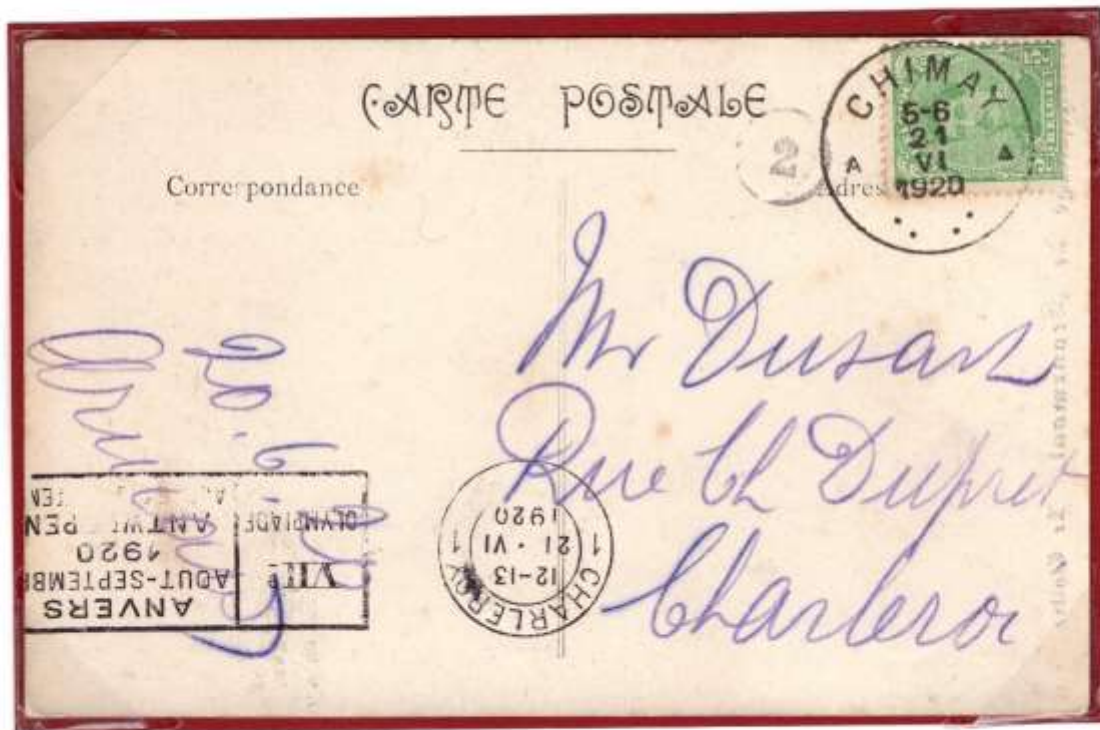 CARTE POSTALE
Correspondance
Adres
2
CHIMAY
5-6
21
VI
1920
A A
Mr Dusart
Rue Ch Dupret
Charleroi
20.6.20
1 CHARLEROY 1
12-13
21 · VI
1920
ANVERS
AOUT-SEPTEMB
1920
VIIE
OLYMPIADE